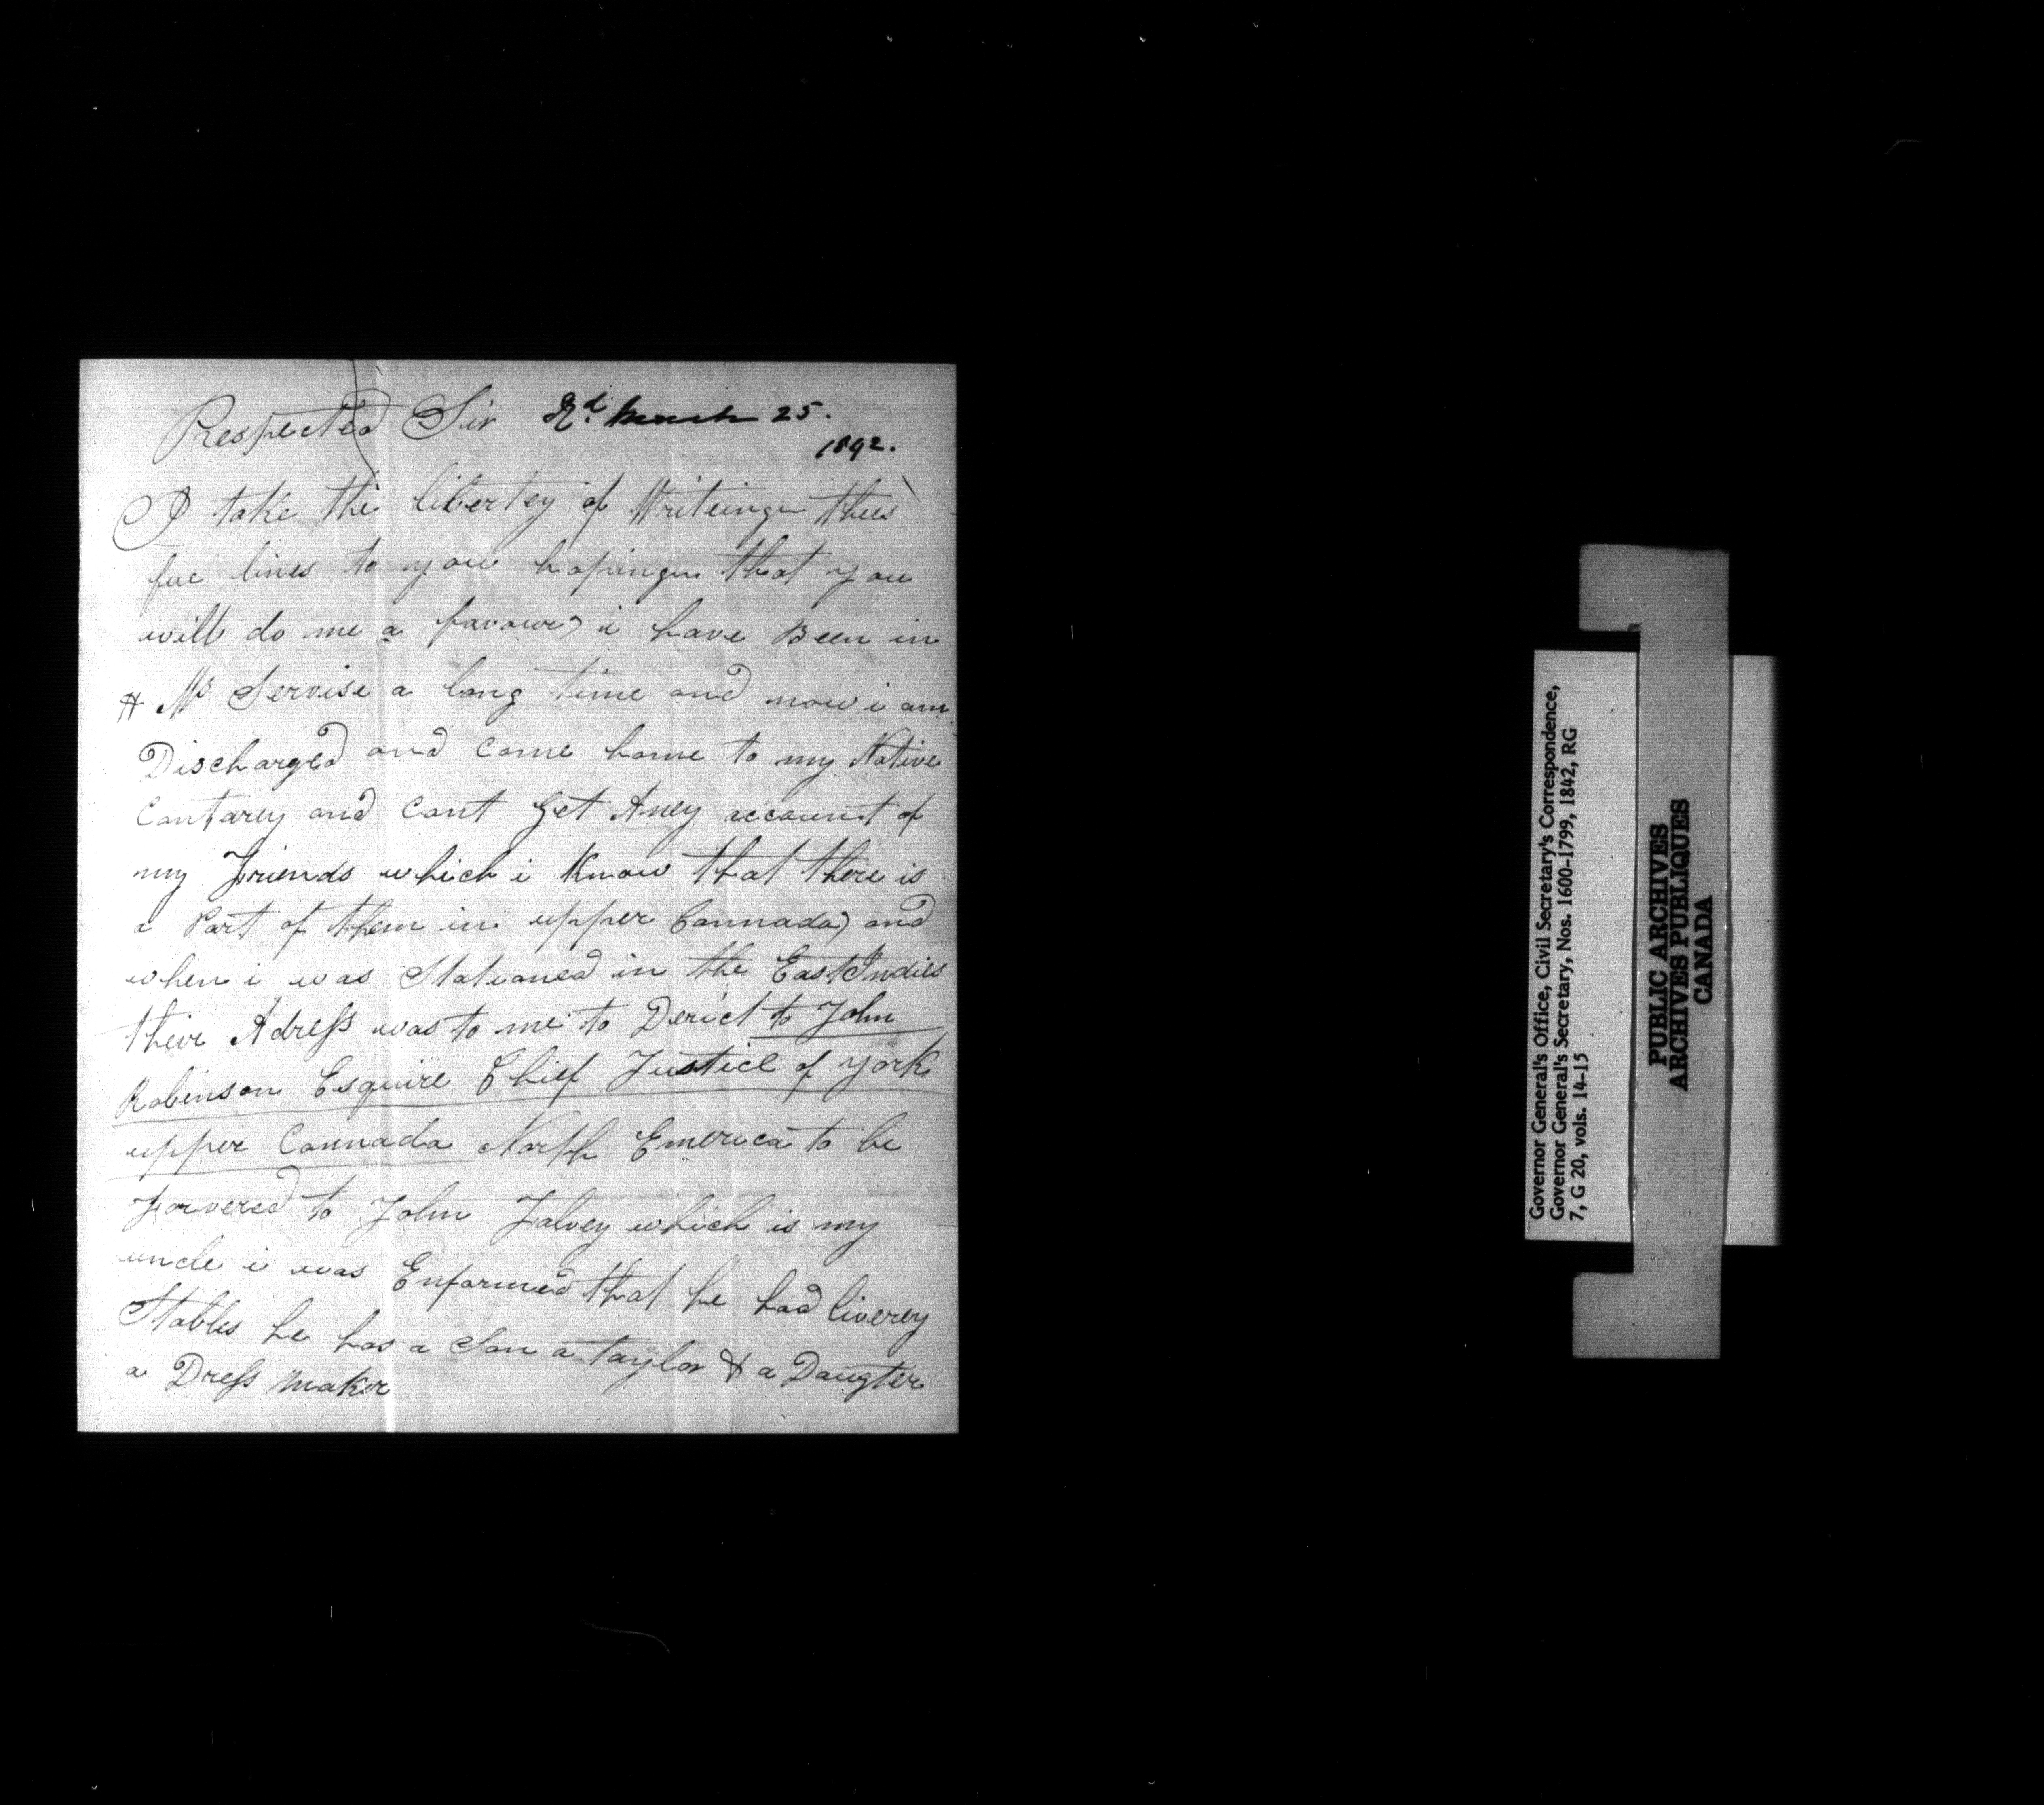 Respected Sir Rd. March 25.
1842.
I take the libertey of Writeing thees
fue lines to you hopeing that you
will do me a favour i have Been in
H Ms. Servise a long time and now i am
Discharged and Come home to my Native
Contarey and Cant Get Aney account of
my Friends which i Know that there is
a Part of them in upper Cannada and
when i was Stationed in the East Indies
their Adress was to me to Derict to John
Robinson Esquire Chief Justice of york
upper Cannada North Emerica to be
Forvered to John Falvey which is my
uncle i was Enformed that he had liverey
Stables he has a Son a taylor & a Daugter
a Dress maker
Governor General's Office, Civil Secretary's Correspondence,
Governor General's Secretary, Nos. 1600-1799, 1842, RG
7, G 20, vols. 14-15
PUBLIC ARCHIVES
ARCHIVES PUBLIQUES
CANADA